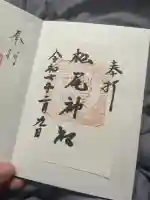 奉拝
松尾神社
令和七年二月九日
奉拝